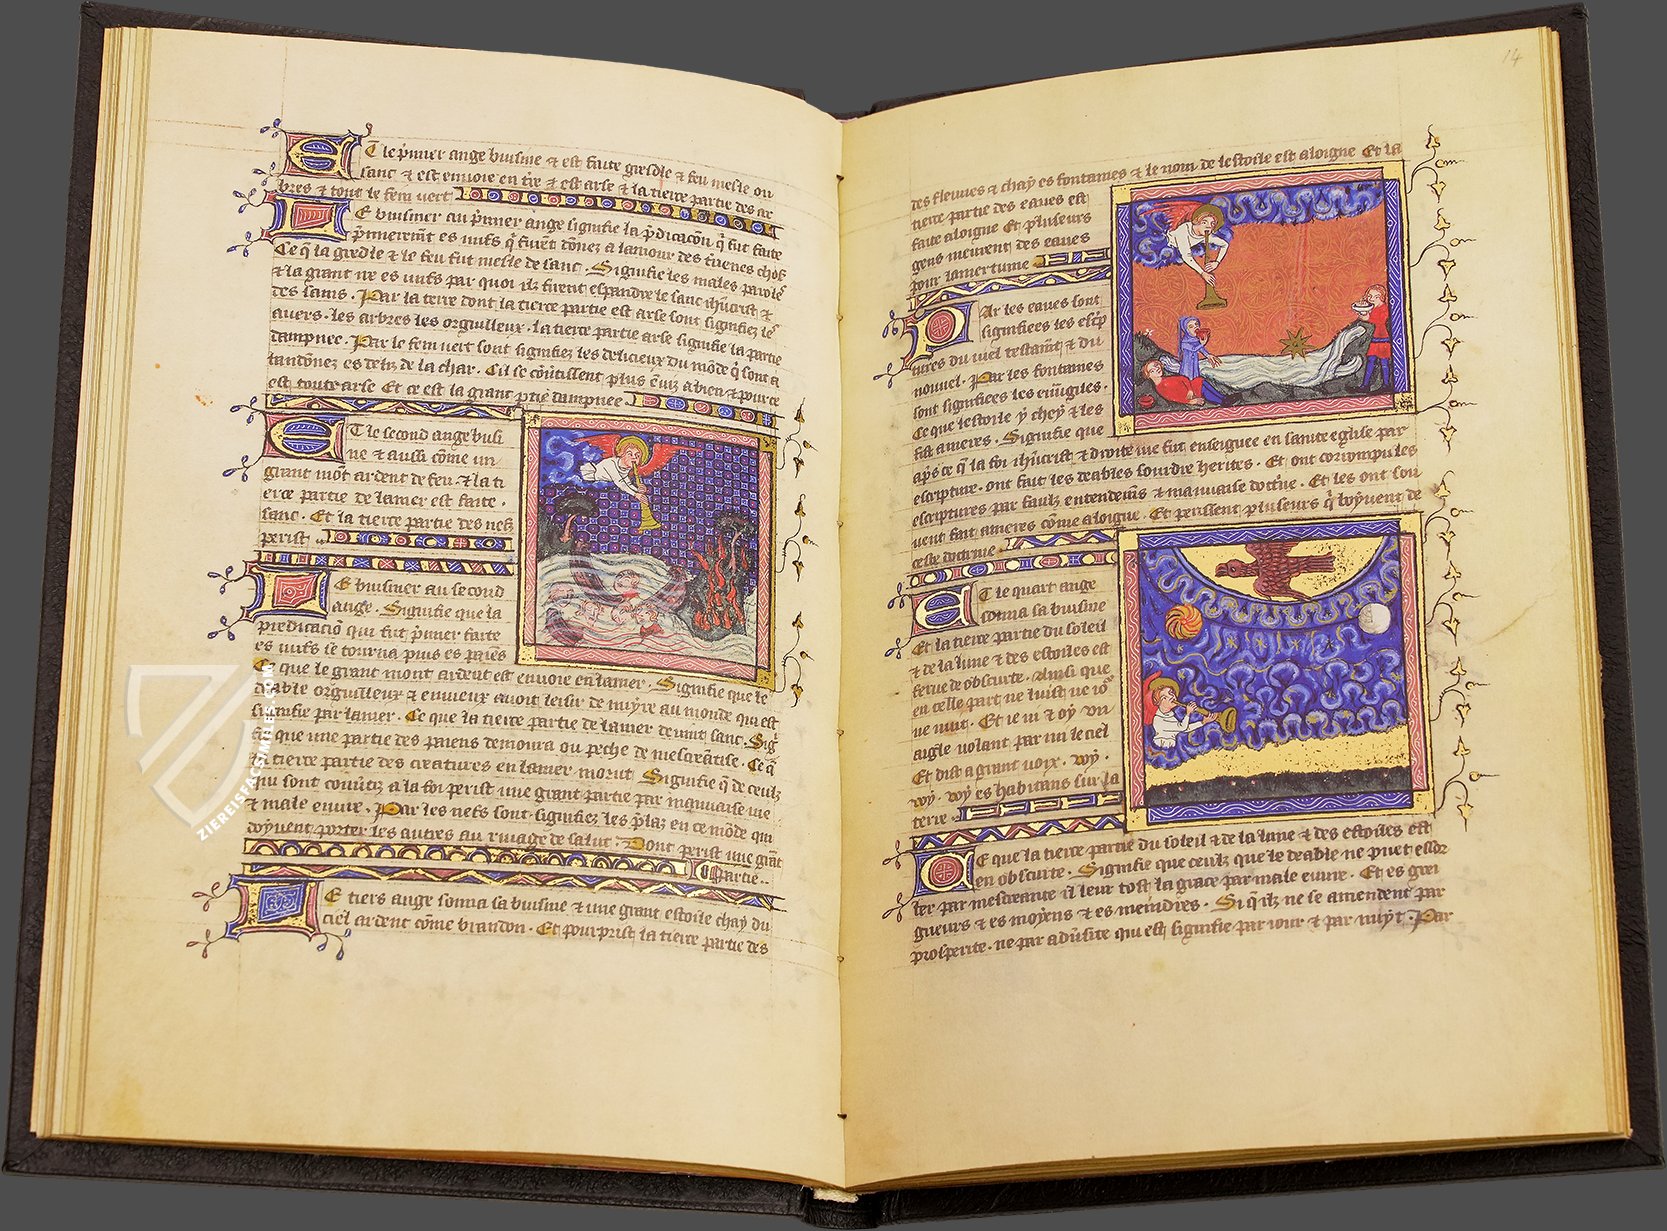 Et le p̃mier ange buisine ⁊ est faite gresdle ⁊ feu mesle ou
sanc ⁊ est envoie en t̃re ⁊ est arse ⁊ la tierce partie des ar
bres ⁊ tout le fein vert
Le buisiner au p̃mier ange signifie la p̃dicacōn q̃ fut faite
p̃mierem̃t es iuifs q̃
Ce q̃ la gresdle ⁊ le feu fut mesle de sanc. Signifie les males parol̃
⁊ la grant ire es iuifs par quoi ilz firent espandre le sanc ih̃ucrist ⁊
des sains. Par la terre dont la tierce partie est arse sont signifiez les
avers. les arbres les orguilleux. la tierce partie arse signifie la partie
dampnee. Par le fein vert sont signifiez les delicieux du mōde q̃ sont a
bandōnez es deliz de la char.
est toute arse Et ce est la grant p̃tie dampnee.
Et le second ange buisi
ne ⁊ aussi cōme un
grant mōt ardent de feu. ⁊ la ti
erce partie de la mer est faite.
sanc. Et la tierce partie des nefs
perist.
Le buisiner au second
ange. Signifie que la
predicaciō qui fut p̃mier faite
es iuifs se tourna puis es paiēs
Ce que le grant mont ardent est envoie en la mer. Signifie que le
deable orguilleux ⁊ envieux avoit leisir de nuyre au monde qui est
signifie par la mer. Ce que la tierce partie de la mer devint sanc. Sig̃
fie que une partie des paiens demoura ou peche de mescreātise. Ce q̃
la tierce partie des creatures en la mer morut Signifie q̃ de ceulz
qui sont cōv̄tiz a la foi perist une grant partie par mauvaise vie
⁊ male euvre. Par les nefs sont signifiez les p̃laz en ce mōde qui
doyvent porter les autres au rivage de salut. Dont perist une grāt
partie..
Le tiers ange sonna sa buisine ⁊ une grant estoile chay du
ciel ardent cōme brandon. Et pourprist la tierce partie des
14
des fleuves ⁊ chay es fontaines ⁊ le nom de lestoile est aloigne Et la
tierce partie des eaues est
faite aloigne Et pluseurs
gens meurent des eaues
pour lamertume
Par les eaues sont
signifiees les esc̃p
tures du viel testam̃t ⁊ du
nouvel. Par les fontaines
sont signifiees les euṽgiles.
Ce que lestoile y chey ⁊ les
fist ameres. Signifie que
ap̃s ce q̃ la foi ih̃ucrist ⁊ droiture fut enseignee en sainte eglise par
escripture. ont fait les deables sourdre herites. Et ont corrompu les
escriptures par faulz entendem̃s ⁊ mauvaise doct̃ne. Et les ont sou
vent fait ameres cōme aloigne. Et perissent pluseurs q̃ boyvent de
ceste doctrine
Et le quart ange
sonna sa buisine
Et la tierce partie du soleil
⁊ de la lune ⁊ des estoiles est
ferue de obscurte. Ainsi que
en celle part ne luist ne io᷒
ne nuit. Et ie vi ⁊ oy un
aigle volant par mi le ciel
Et dist a grant voix. wy.
wy. wy es habitans sur la
terre.
Ce que la tierce partie du soleil ⁊ de la lune ⁊ des estoiles est
en obscurte. Signifie que ceulz que le deable ne puet esldr
ter par mescreante il leur tost la grace par male euvre. Et es grei
gneurs ⁊ es moyens ⁊ es meindres. Si q̃ ilz ne se amendent par
prosperite. ne par adũsite qui est signifie par iour ⁊ par nuyt. Par
ZIEREIS FACSIMILES.COM